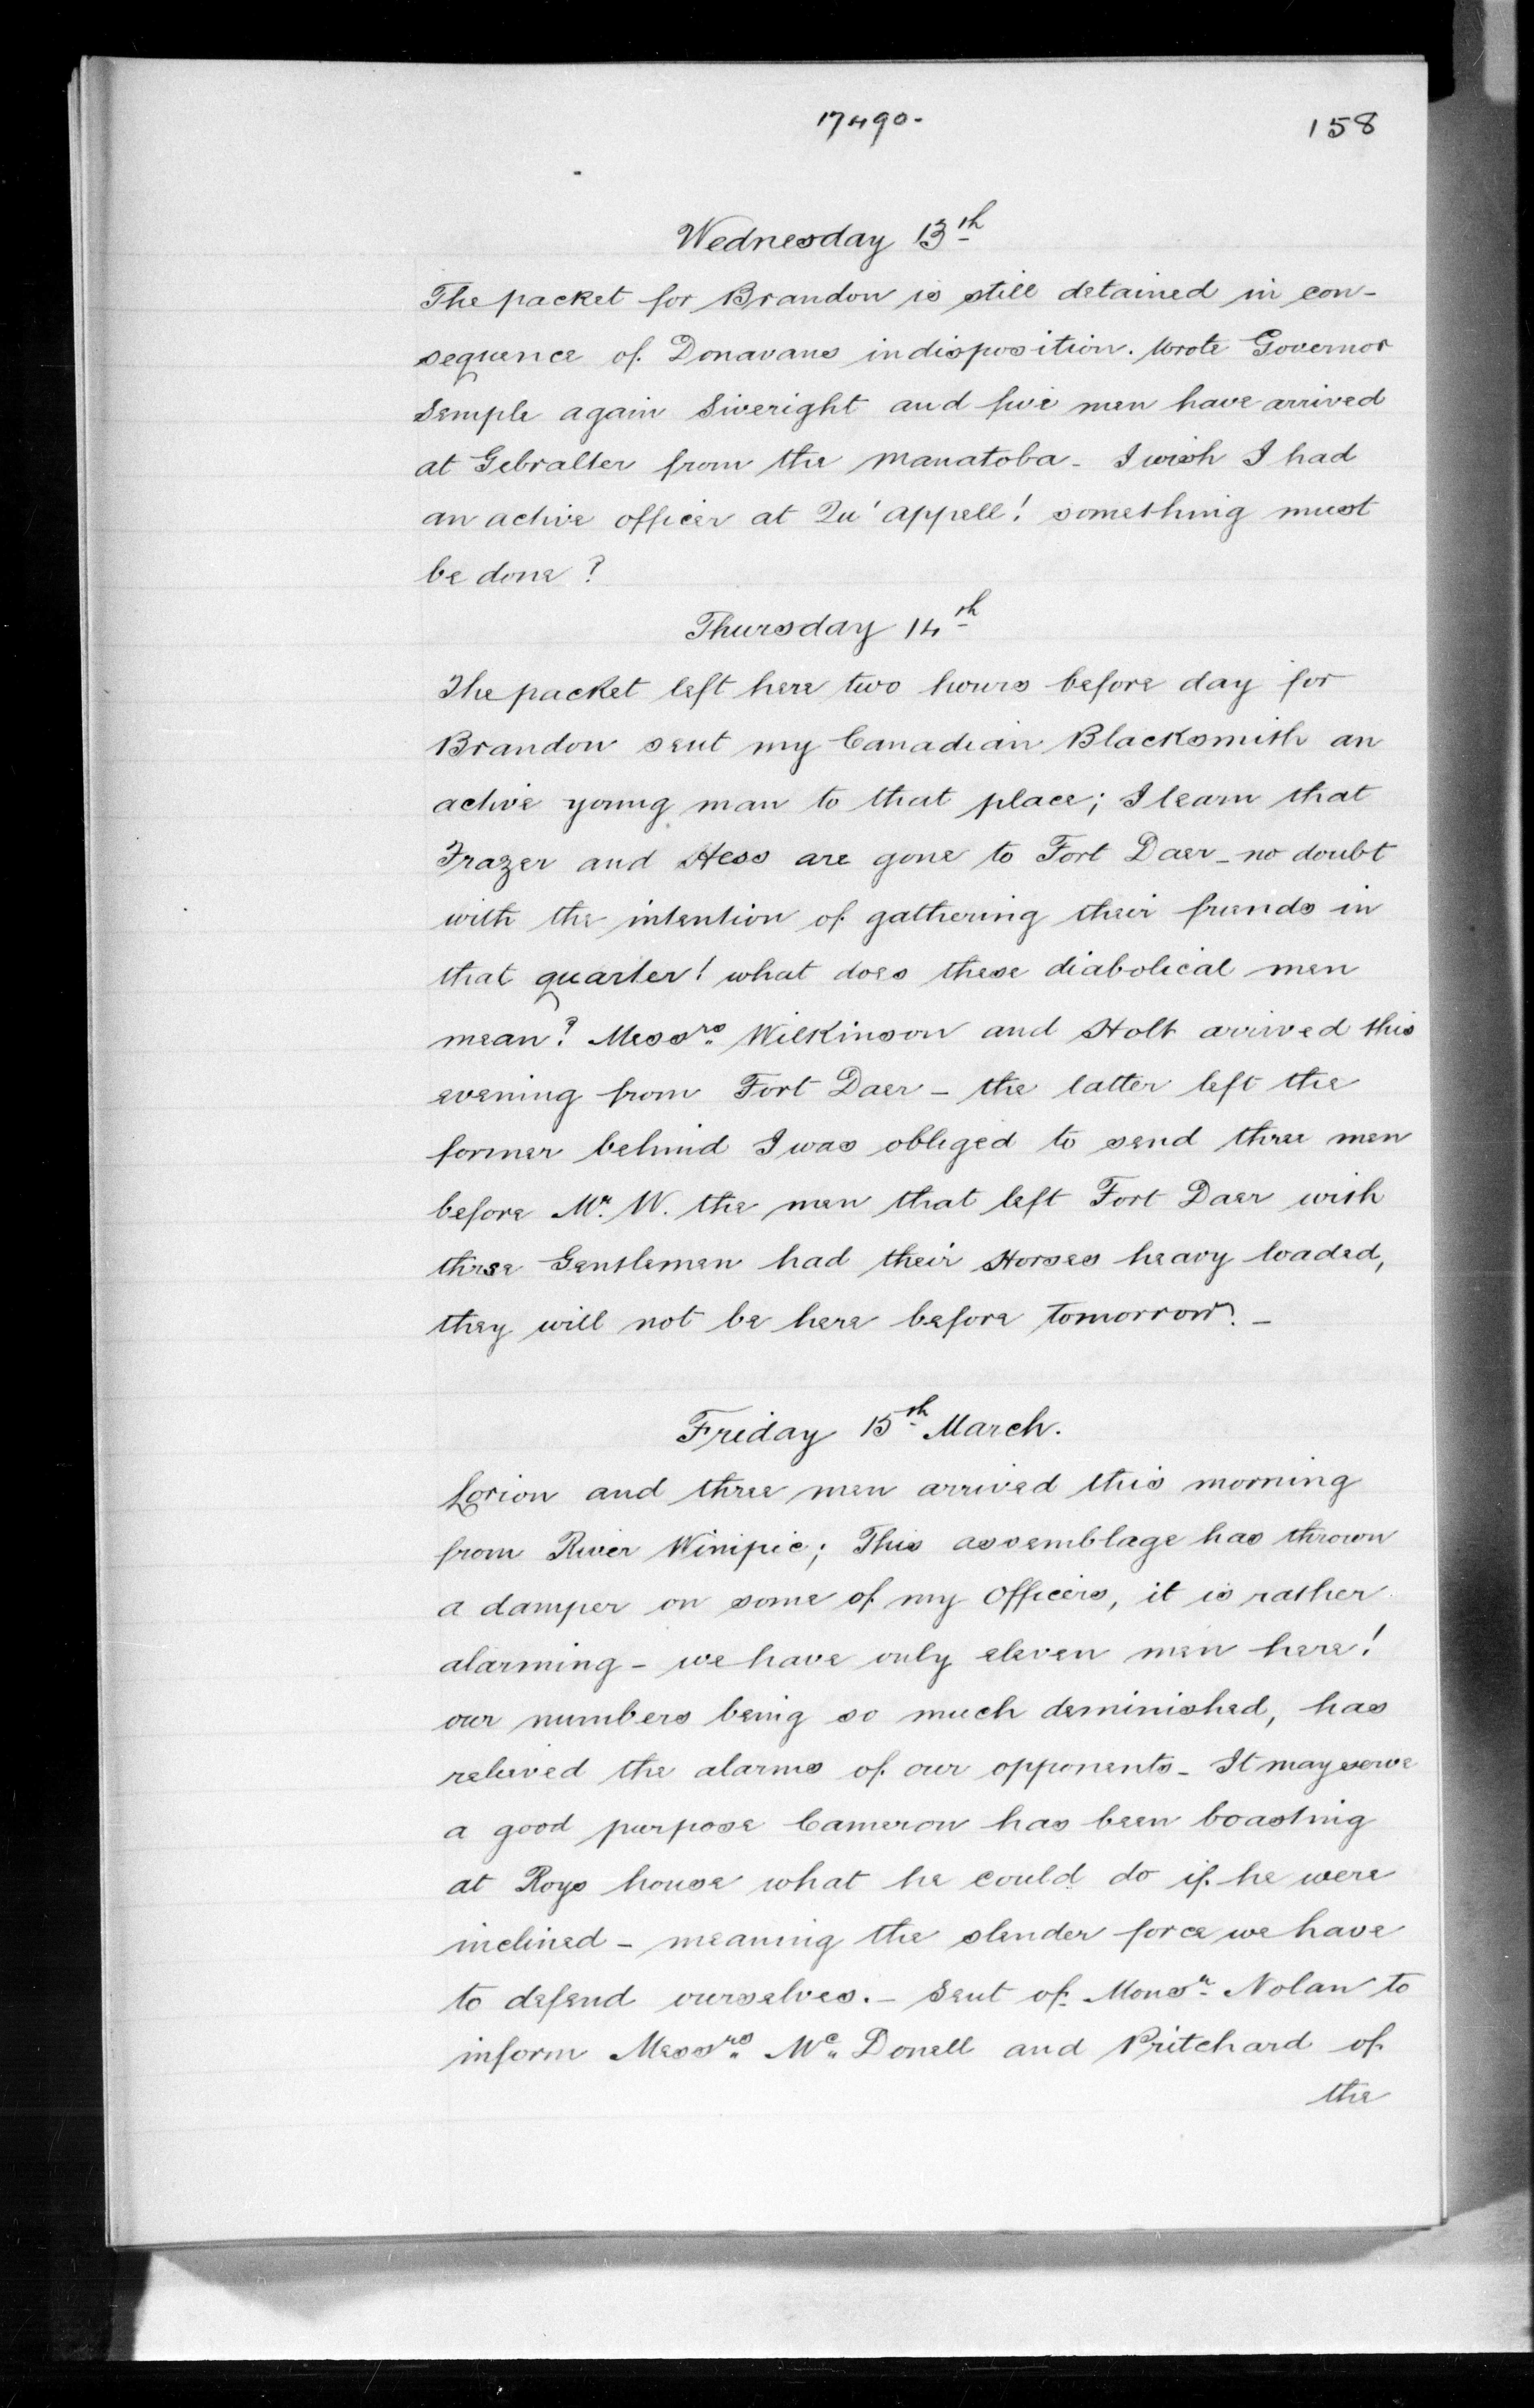 17490.
158
Wednesday 13th
The packet for Brandon is still detained in con-
sequence of Donavans indisposition. Wrote Governor
Semple again Siveright and five men have arrived
at Gebralter from the Manatoba - I wish I had
an active officer at Qu'appell! something must
be done?
Thursday 14th
The packet left here two hours before day for
Brandon sent my Canadian Blacksmith an
active young man to that place; I learn that
Frazer and Hess are gone to Fort Daer - no doubt
with the intention of gathering their friends in
that quarter! what does these diabolical men
mean? Messrs Wilkinson and Holt arrived this
evening from Fort Daer - the latter left the
former behind I was obliged to send three men
before Mr. W. the men that left Fort Daer with
these Gentlemen had their Horses heavy loaded,
they will not be here before tomorrow. -
Friday 15th March.
Lorion and three men arrived this morning
from River Winipic; This assemblage has thrown
a damper on some of my Officers, it is rather
alarming - we have only eleven men here!
our numbers being so much deminished, has
relieved the alarms of our opponents - It may serve
a good purpose Cameron has been boasting
at Roys house what he could do if he were
inclined - meaning the slender force we have
to defend ourselves. - Sent of Monsr. Nolan to
inform Messrs Mc Donell and Pritchard of
the